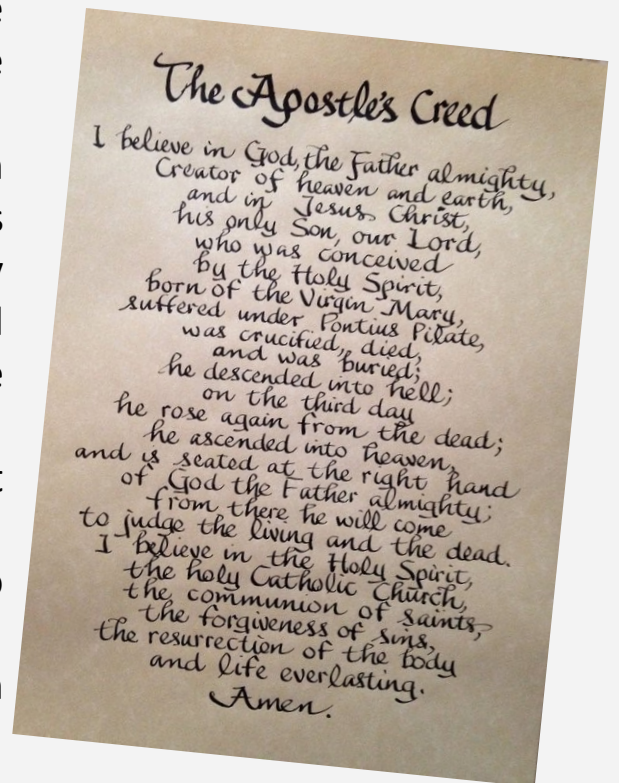 The Apostle's Creed
I believe in God, the Father almighty,
Creator of heaven and earth,
and in Jesus Christ,
his only Son, our Lord,
who was conceived
by the Holy Spirit,
born of the Virgin Mary,
suffered under Pontius Pilate,
was crucified, died,
and was buried;
he descended into hell;
on the third day
he rose again from the dead;
he ascended into heaven,
and is seated at the right hand
of God the Father almighty;
from there he will come
to judge the living and the dead.
I believe in the Holy Spirit,
the holy Catholic Church,
the communion of saints,
the forgiveness of sins,
the resurrection of the body
and life everlasting.
Amen.